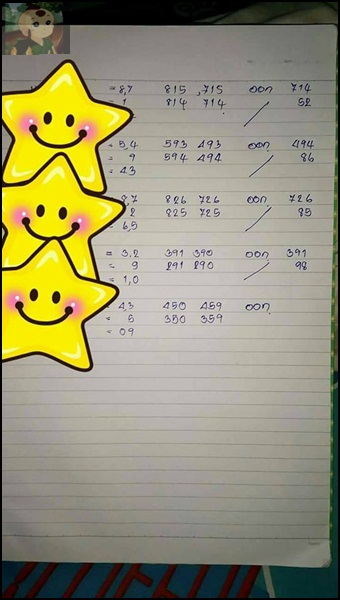 = 8,7 815 ,715 ออก 714
= 1 814 714 / 52
= 5,4 593 493 ออก 494
= 9 594 494 / 86
= 43
8,7 826 726 ออก 726
2 825 725 / 85
= 6,5
= 3,2 391 390 ออก 391
= 9 291 290 / 98
= 1,0
= 4,3 450 459 ออก
= 5 350 359
= 09